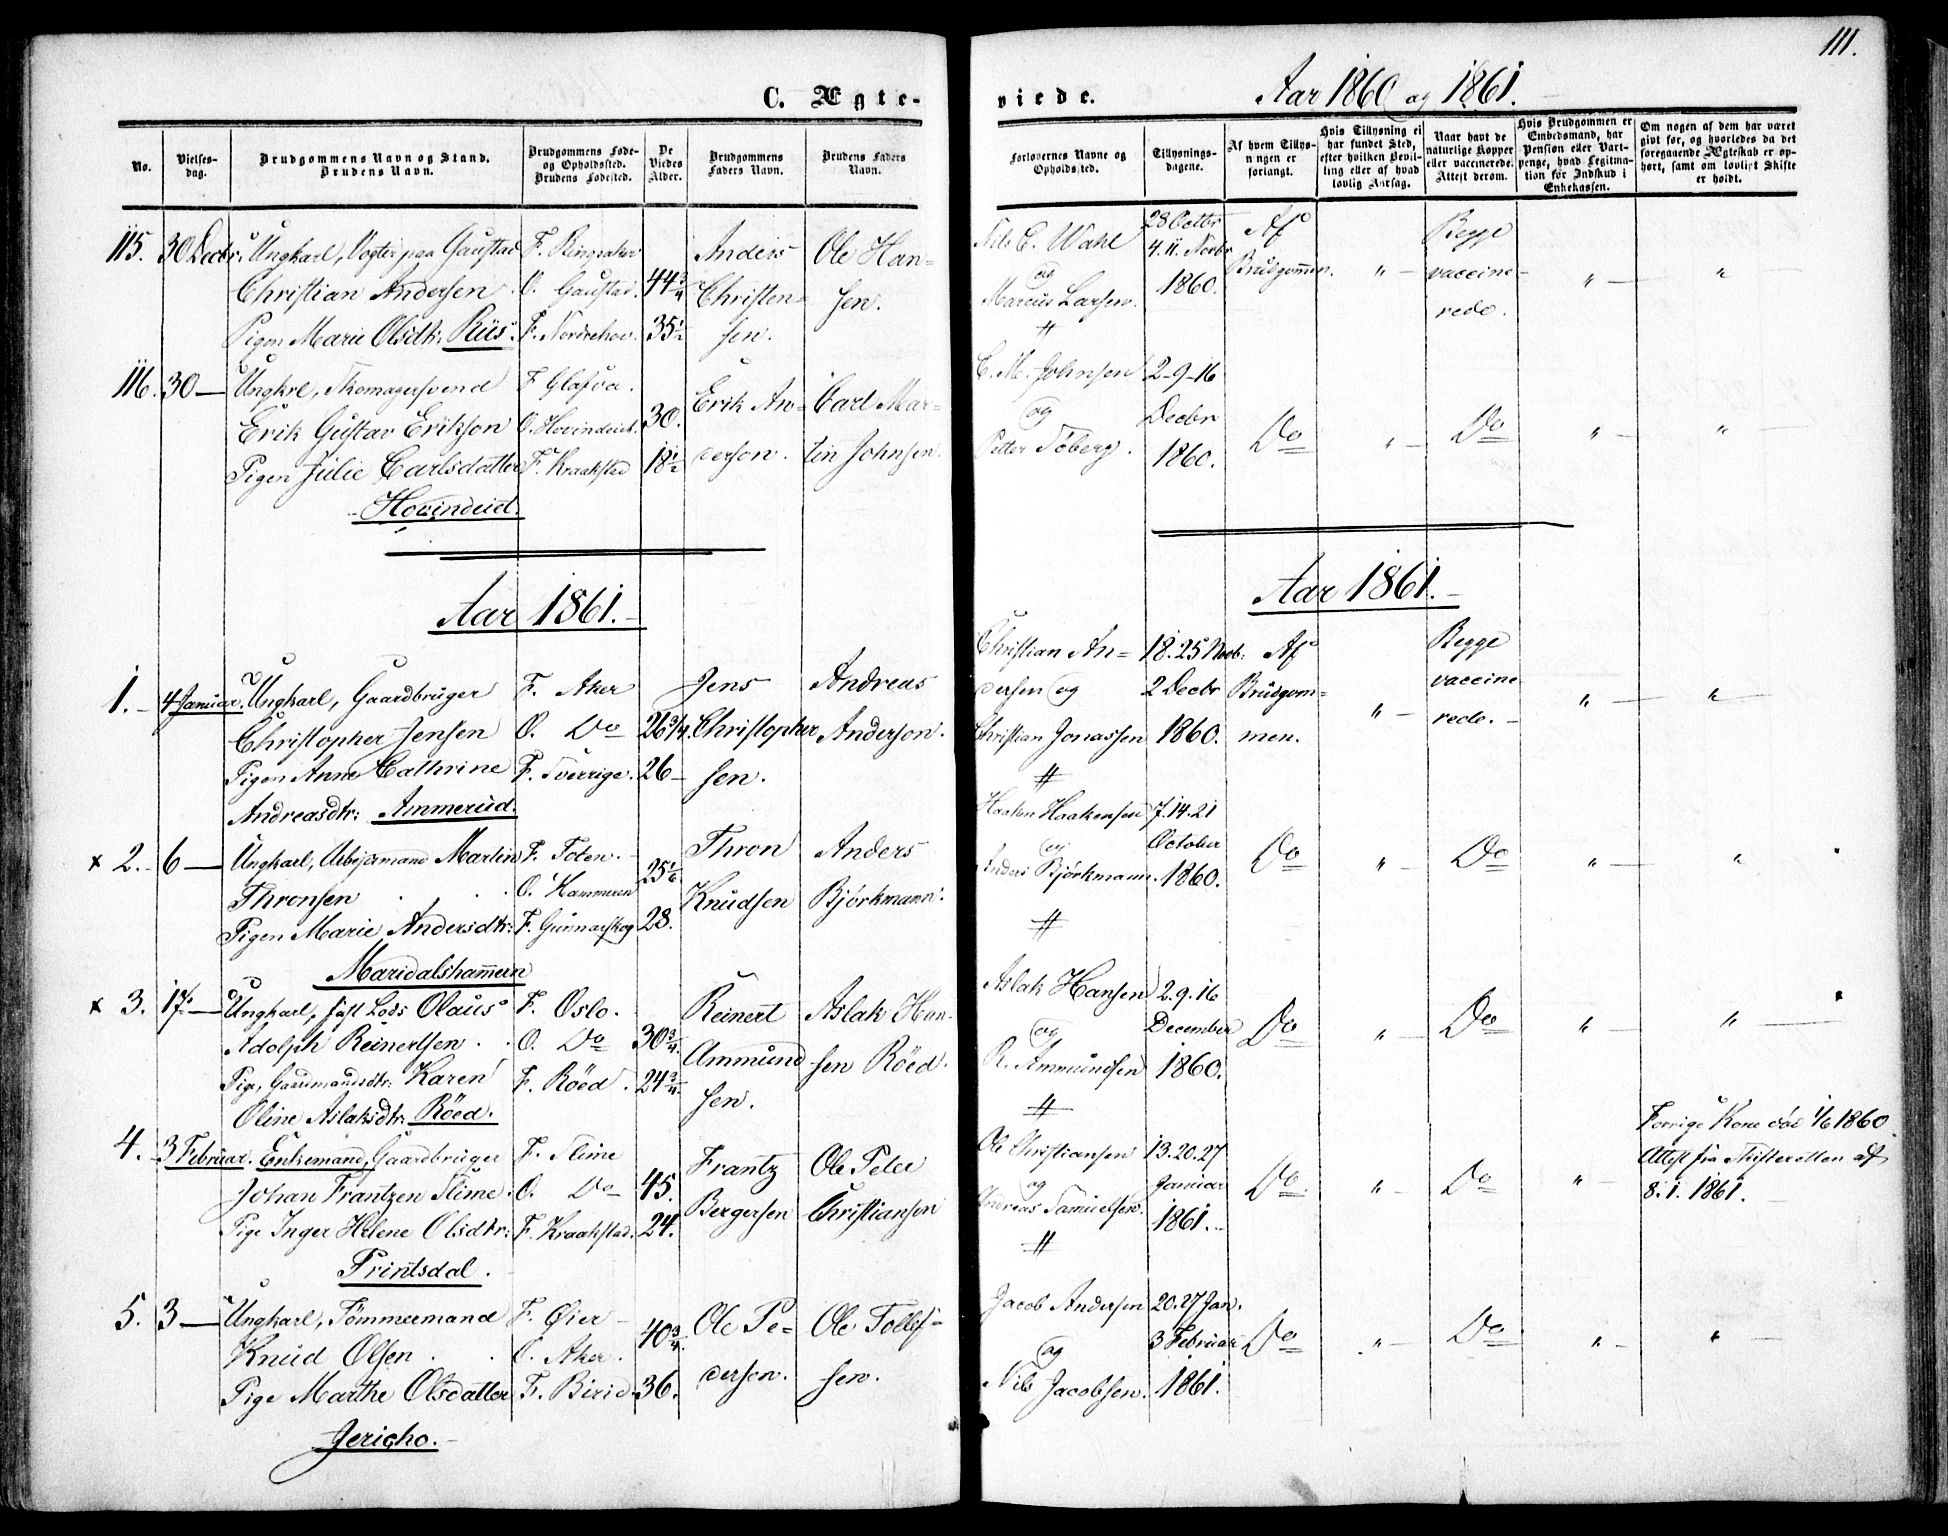 111.
C. Ægte-
viede.
Aar 1860 og 1861.
No.
Vielses-
dag.
Brudgommens Navn og Stand.
Brudens Navn.
Brudgommens Føde-
og Opholdssted.
Brudens Fødested.
De
Viedes
Alder.
Brudgommens
Faders Navn.
Brudens Faders
Navn.
Forlovernes Navne og
Opholdssted.
Tillysnings-
dagene.
Af hvem Tillys-
ningen er
forlangt.
Hvis Tillysning ei
har fundet Sted,
efter hvilken Bevil-
ling eller af hvad
lovlig Aarsag.
Naar havt de
naturlige Kopper
eller vaccinerede.
Attest derom.
Hvis Brudgommen er
Embedsmand, har
Pension eller Vart-
penge, hvad Legitima-
tion for Indskud i
Enkekassen.
Om nogen af dem har været
gift før, og hvorledes da det
foregaaende Ægteskab er op-
hørt, samt om lovligt Skifte
er holdt.
115. 30 Decbr. Ungkarl, Vogter paa Gaustad
Christian Andersen
Pigen Marie Olsdtr: Riis.
F. Ringsaker
O. Gaustad.
F. Nordrehov.
44 3/4
35 1/2
Anders
Christen=
sen.
Ole Han=
sen.
Nils C. Wahl
og
Marcus Larsen.
28 Octbr
4. 11. Novbr
1860.
Af
Brudgommen.
"
Begge
vaccine-
rede.
" "
116. 30 — Ungkrl, Thomagersvend
Erik Gustav Erikson
Pigen Julie Carlsdatter
Hovindeid.
F. Glafva.
O. Hovindeid.
F. Kraakstad
30.
18 1/2
Erik An=
derson.
Carl Mar=
tin Johnsen.
C. M. Johnsen
og
Petter Töberg.
2-9-16
Decbr
1860.
Do " Do " "
Aar 1861.
Aar 1861.
1. 4 Januar. Ungkarl, Gaardbruger
Christopher Jensen
Pigen Anne Cathrine
Andreasdtr: Ammerud.
F. Aker
O. Do
F. Sverrige.
26 3/4.
26
Jens
Christopher
sen.
Andreas
Anderson.
Christian An=
dersen og
Christian Jonassen
18. 25 Novb:
2 Decbr
1860.
Af
Brudgom=
men.
"
Begge
vaccine
rede.
" "
x 2. 6 — Ungkarl, Arbejdsmand Martin
Thronsen
Pigen Marie Andersdtr:
Maridalshammern
F. Toten.
O. Hammeren
F. Gunnarskog
25 1/6
28.
Thron
Knudsen
Anders
Björkmann.
Haaken Haakensen
og
Anders Björkmann.
7. 14. 21
October
1860.
Do " Do " "
x 3. 17 — Ungkarl, fast Lods Olaus
Adolph Reinertsen
Pige, Gaardmandsdtr: Karen
Oline Aslaksdtr: Röed.
F. Oslo.
O. Do
F. Röed.
30 3/4.
24 3/4.
Reinert
Ammund
sen.
Aslak Han-
sen Röed.
Aslak Hansen
og
R. Ammundsen
2. 9. 16
December
1860.
Do " Do " "
4. 3 Februar. Enkemand, Gaardbruger
Johan Frantzen Slime.
Pige Inger Helene Olsdtr:
Printsdal.
F. Slime
O. Do
F. Kraakstad.
45.
24.
Frantz
Bergersen
Ole Peter
Christiansen
Ole Christiansen
og
Andreas Samuelsen.
13. 20. 27
Januar
1861.
Do. " Do "
Forrige Kone död 1/6 1860.
Attest fra Skifteretten af
8. 1. 1861.
5. 3 — Ungkarl, Tömmermand
Knud Olsen
Pige Marthe Olsdatter
Jericho.
F. Öier
O. Aker.
F. Birid
40 3/4.
36.
Ole Pe=
dersen.
Ole Tollef-
sen.
Jacob Andersen
og
Nils Jacobsen.
20. 27 Jan.
3 Februar
1861.
Do " Do " "